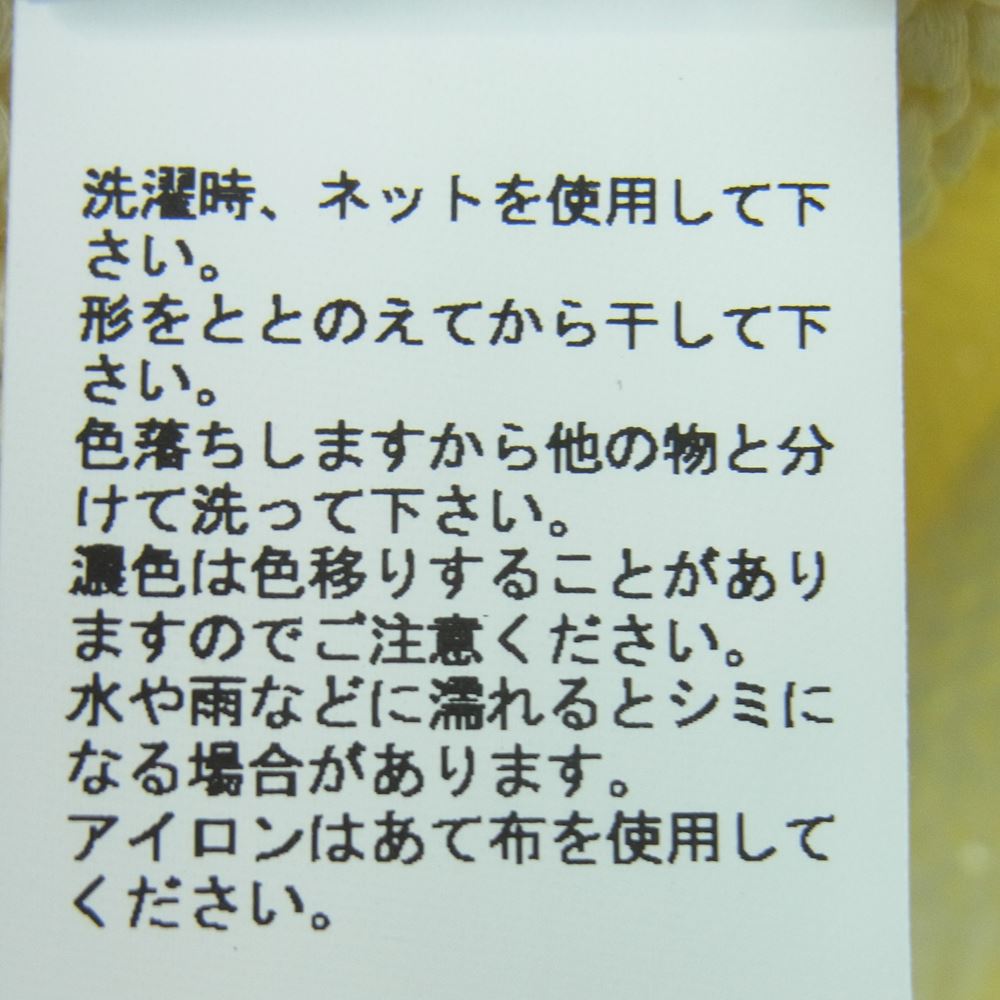 洗濯時、ネットを使用して下
さい。
形をととのえてから干して下
さい。
色落ちしますから他の物と分
けて洗って下さい。
濃色は色移りすることがあり
ますのでご注意ください。
水や雨などに濡れるとシミに
なる場合があります。
アイロンはあて布を使用して
ください。